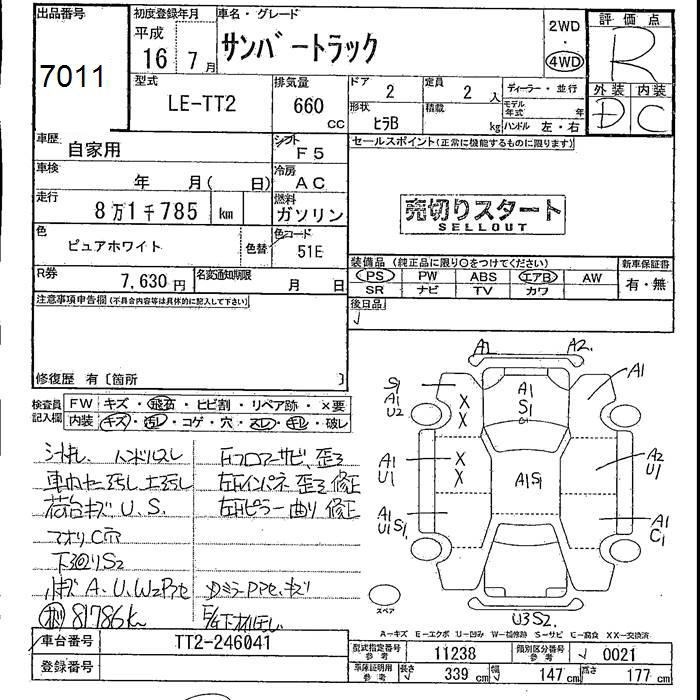 出品番号
7011
初度登録年月
平成
16 7月
車名・グレード
サンバートラック
2WD
・
4WD
評価点
R
外装 内装
D C
型式
LE-TT2
排気量
660
CC
ドア
2
定員
2 人
形状
ヒラB
積載
kg
ディーラー・並行
モデル年式 年
ハンドル 左・右
車歴
自家用
シフト
F5
車検
年 月( 日)
冷房
AC
走行
8万1千785 km
燃料
ガソリン
色
ピュアホワイト
色替
色コード
51E
R券
7,630円
名変通知期限
月 日
セールスポイント(正常に機能するものに限ります)
売切りスタート
SELLOUT
装備品(純正品に限り○をつけてください)
PS PW ABS エアB AW
SR ナビ TV カワ
新車保証書
有・無
後日品
注意事項申告欄(不具合内容等は具体的に記入して下さい)
修復歴 有〔箇所 〕
検査員記入欄
FW キズ・飛石・ヒビ割・リペア跡・×要
内装 キズ・汚レ・コゲ・穴・スレ・キレ・破レ
シート汚れ、ハンドルスレ
荷台キズ U.S.
アオリC穴
下廻りS2
小キズ A.U.W2Pアセ
81786km
左Fインパネ歪ミ修正
左Fピラー曲り修正
A1 A2.
S1
A1
U2
A1
S1
A1
A1
U1
A1S1
A2
U1
A1
U1 S1.
A1
C1
U3S2.
スペア
A−キズ E−エクボ U−凹み W−補修跡 S−サビ C−腐食 XX−交換済
車台番号
TT2-246041
登録番号
型式指定番号 参考
11238
類別区分番号 参考
0021
車庫証明用 参考
長さ 339 cm 幅 147 cm 高さ 177 cm